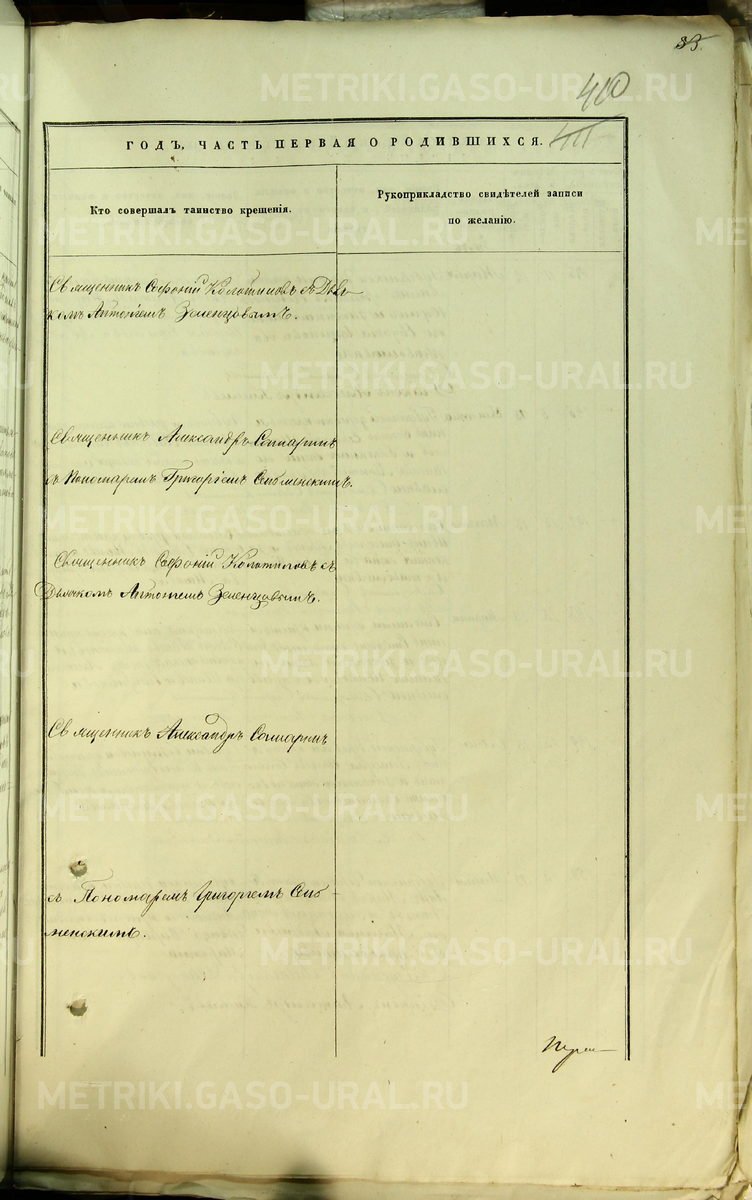 35.
410
411
ГОДЪ, ЧАСТЬ ПЕРВАЯ О РОДИВШИХСЯ.
Кто совершалъ таинство крещенія.
Рукоприкладство свидѣтелей записи
по желанію.
Священникъ Софроній Колотиловъ съ Дьяч
комъ Антоніемъ Зеленцовымъ.
Священникъ Александръ
съ Пономаремъ Григоріемъ
Священникъ Софроній Колотиловъ съ
Дьячкомъ Антоніемъ Зеленцовымъ.
Священникъ Александръ
съ Пономаремъ Григоріемъ
менскимъ.
METRIKI.GASO-URAL.RU